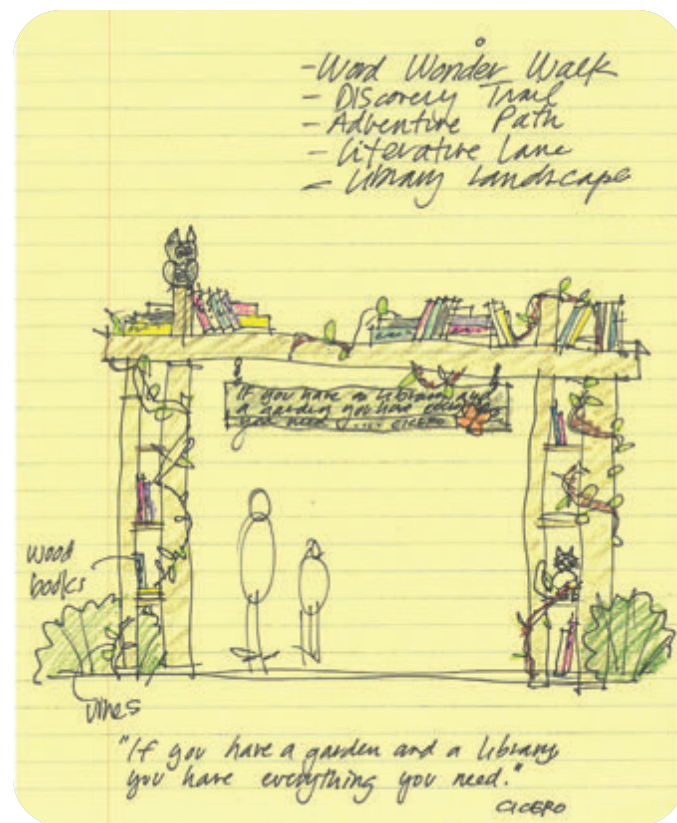 - Word Wonder Walk
- Discovery Trail
- Adventure Path
- Literature Lane
- Library Landscape
If you have a library and
a garden you have everything
you need .... CICERO
wood
books
vines
"If you have a garden and a library
you have everything you need."
CICERO